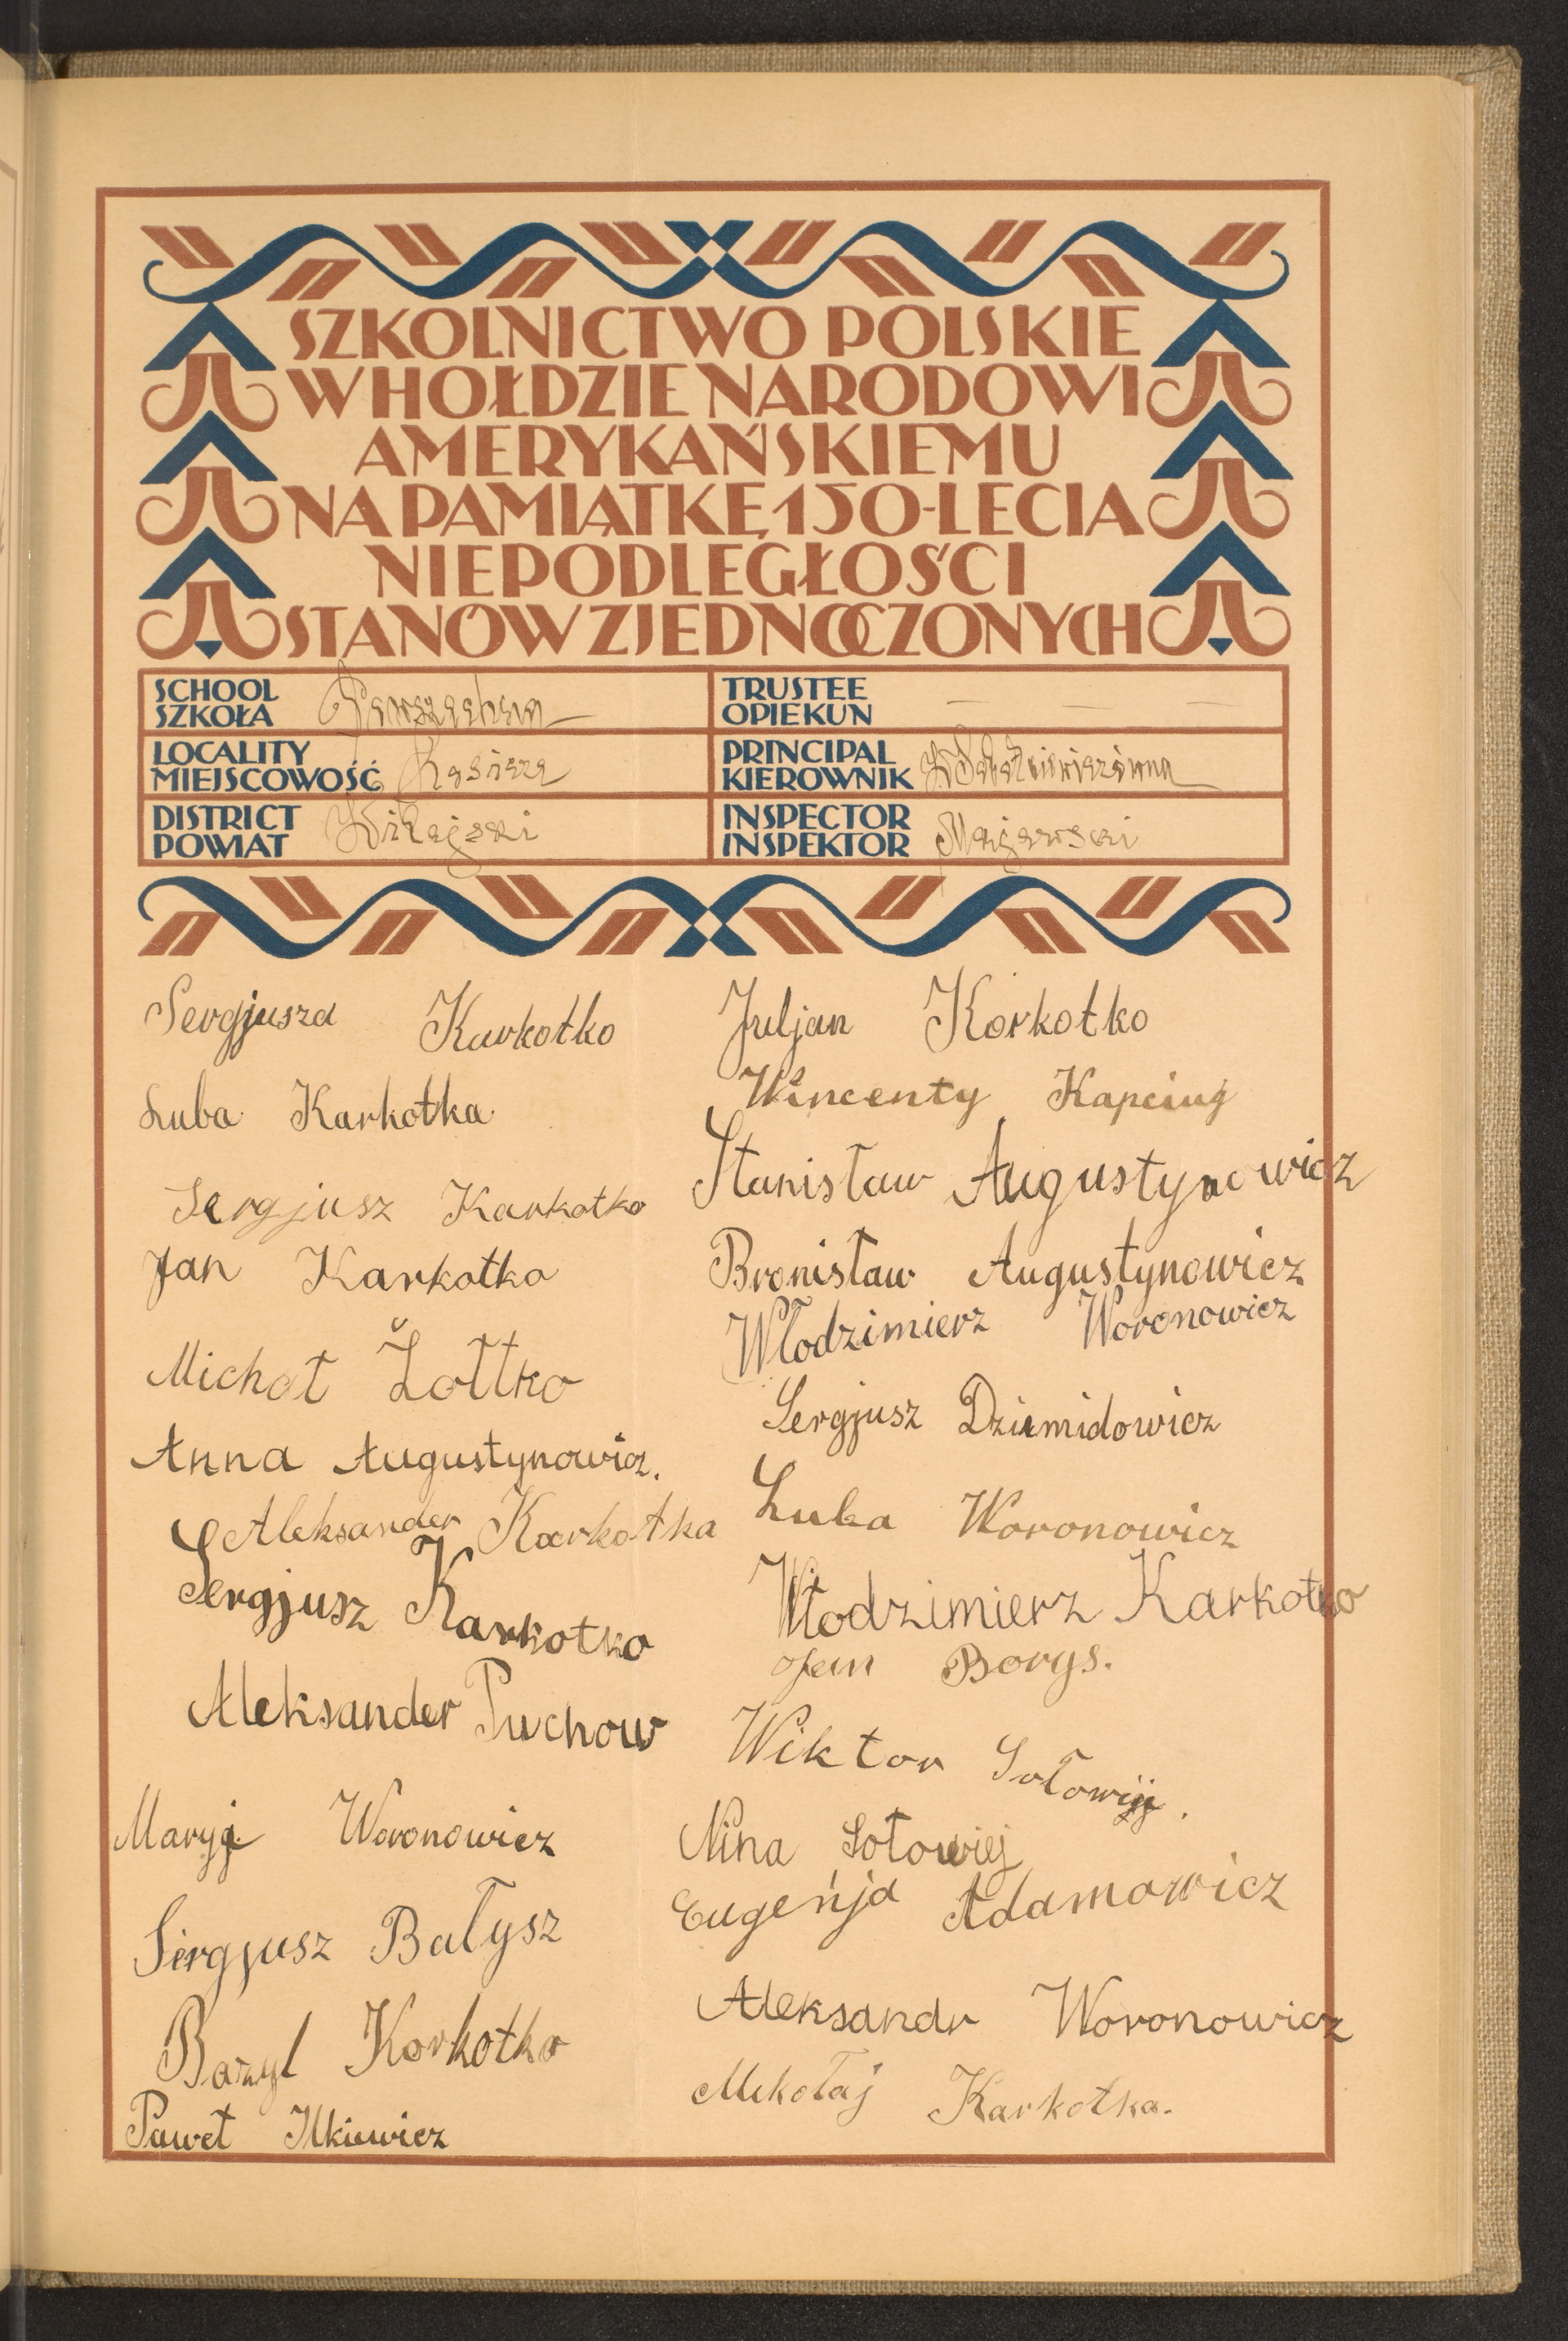 SZKOLNICTWO POLSKIE
W HOŁDZIE NARODOWI
AMERYKAŃSKIEMU
NA PAMIĄTKĘ 150-LECIA
NIEPODLEGŁOŚCI
STANÓW ZJEDNOCZONYCH
SCHOOL
SZKOŁA Powszechna
TRUSTEE
OPIEKUN — — —
LOCALITY
MIEJSCOWOŚĆ
PRINCIPAL
KIEROWNIK
DISTRICT
POWIAT Wilejski
INSPECTOR
INSPEKTOR Majewski
Sergjusza Karkotko
Luba Karkotka
Sergjusz Karkotko
Jan Karkotko
Michał Żołtko
Anna Augustynowicz.
Aleksander Karkotka
Sergjusz Karkotko
Aleksander Puchow
Maryja Woronowicz
Sergjusz Bałysz
Bazyl Korkotko
Paweł Ilkiewicz
Juljan Korkotko
Wincenty Kapciug
Stanisław Augustynowicz
Bronisław Augustynowicz
Włodzimierz Woronowicz
Sergjusz Dziemidowicz
Luba Woronowicz
Włodzimierz Karkotko
Jan Borys.
Wiktor
Nina Sołowiej
Eugenja Adamowicz
Aleksandr Woronowicz
Mikołaj Karkotka.